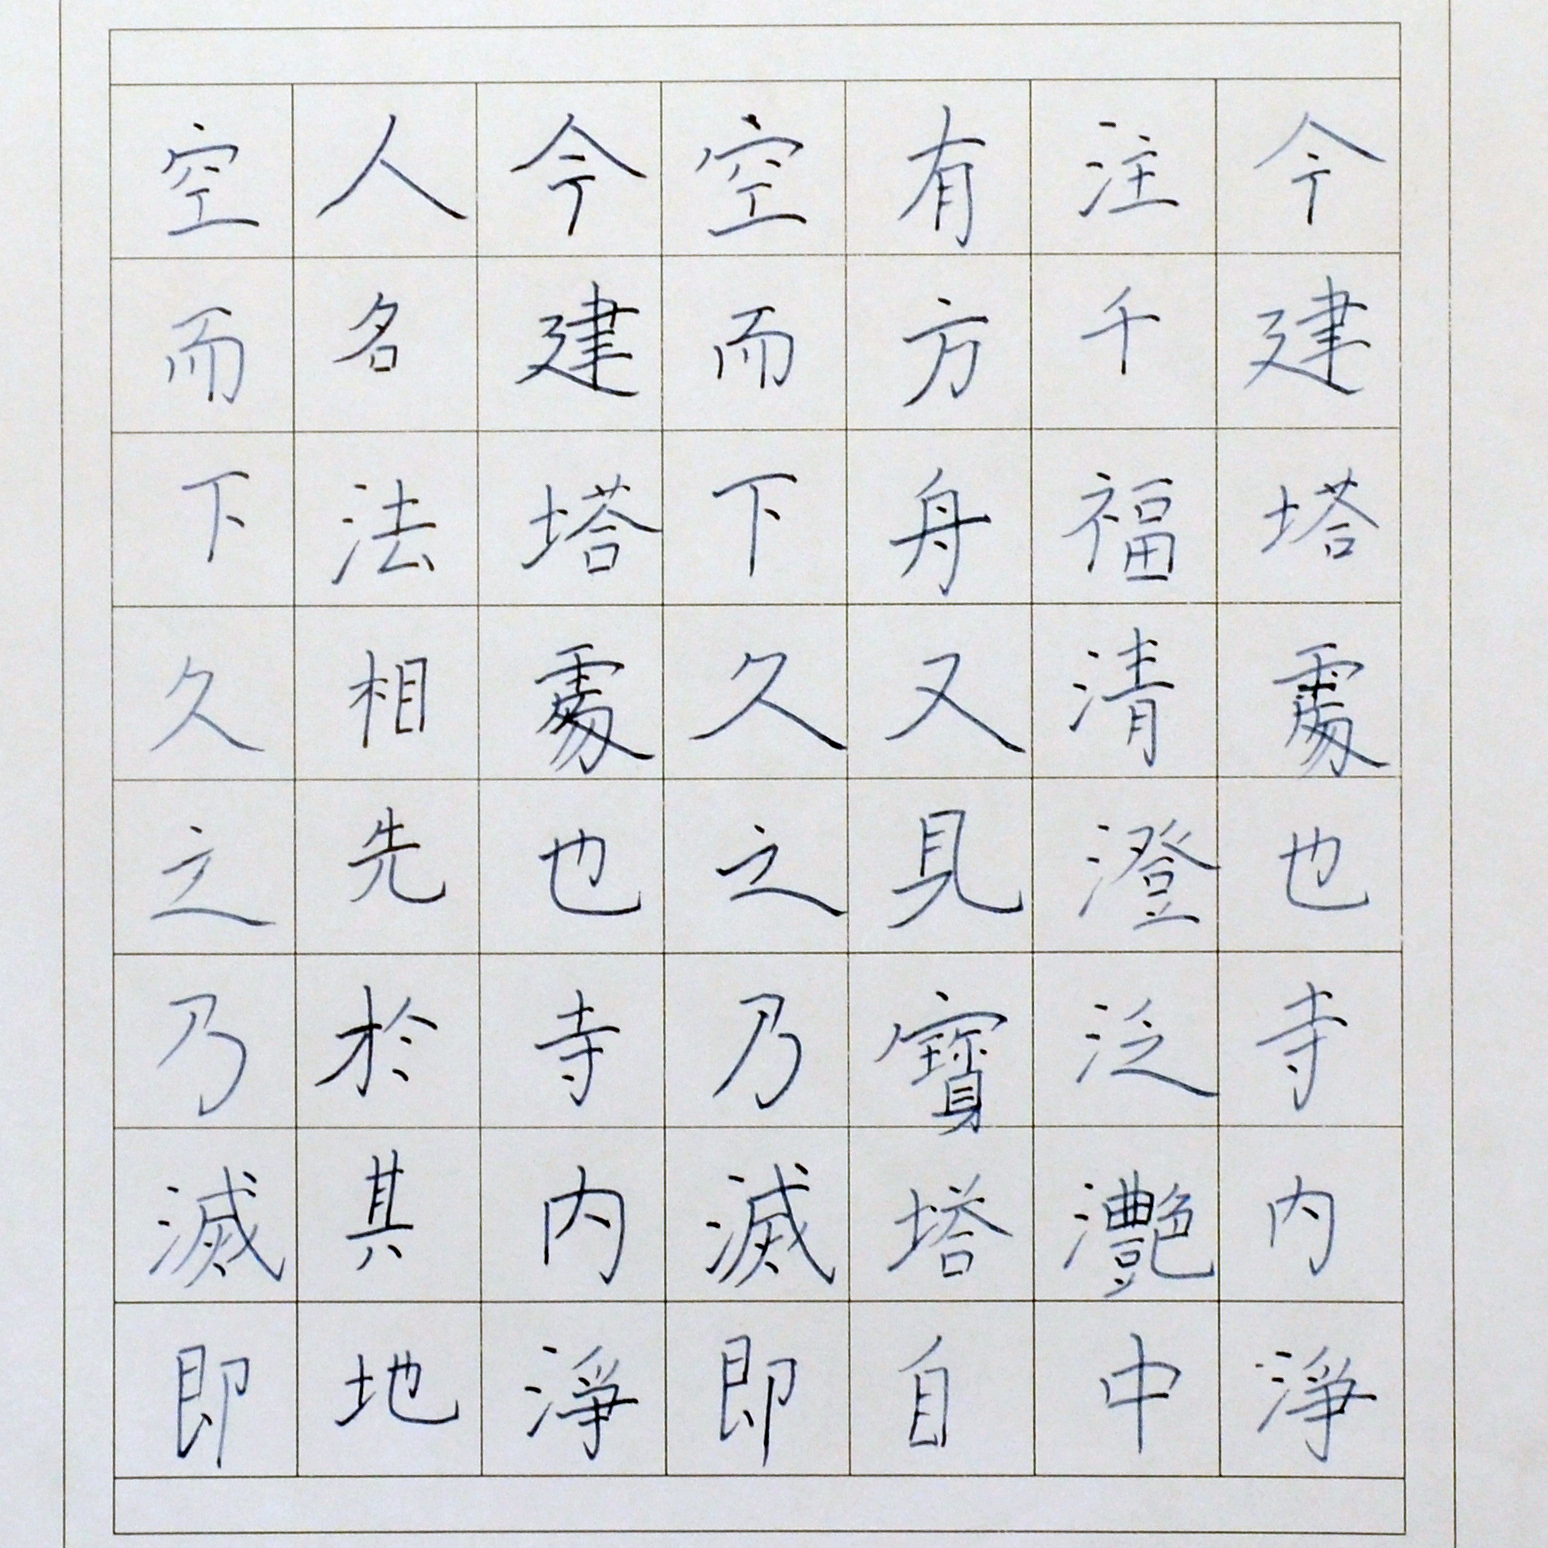 今建塔處也寺内淨
注千福清澄泛灧中
有方舟又見寶塔自
空而下久之乃滅即
今建塔處也寺内淨
人名法相先於其地
空而下久之乃滅即